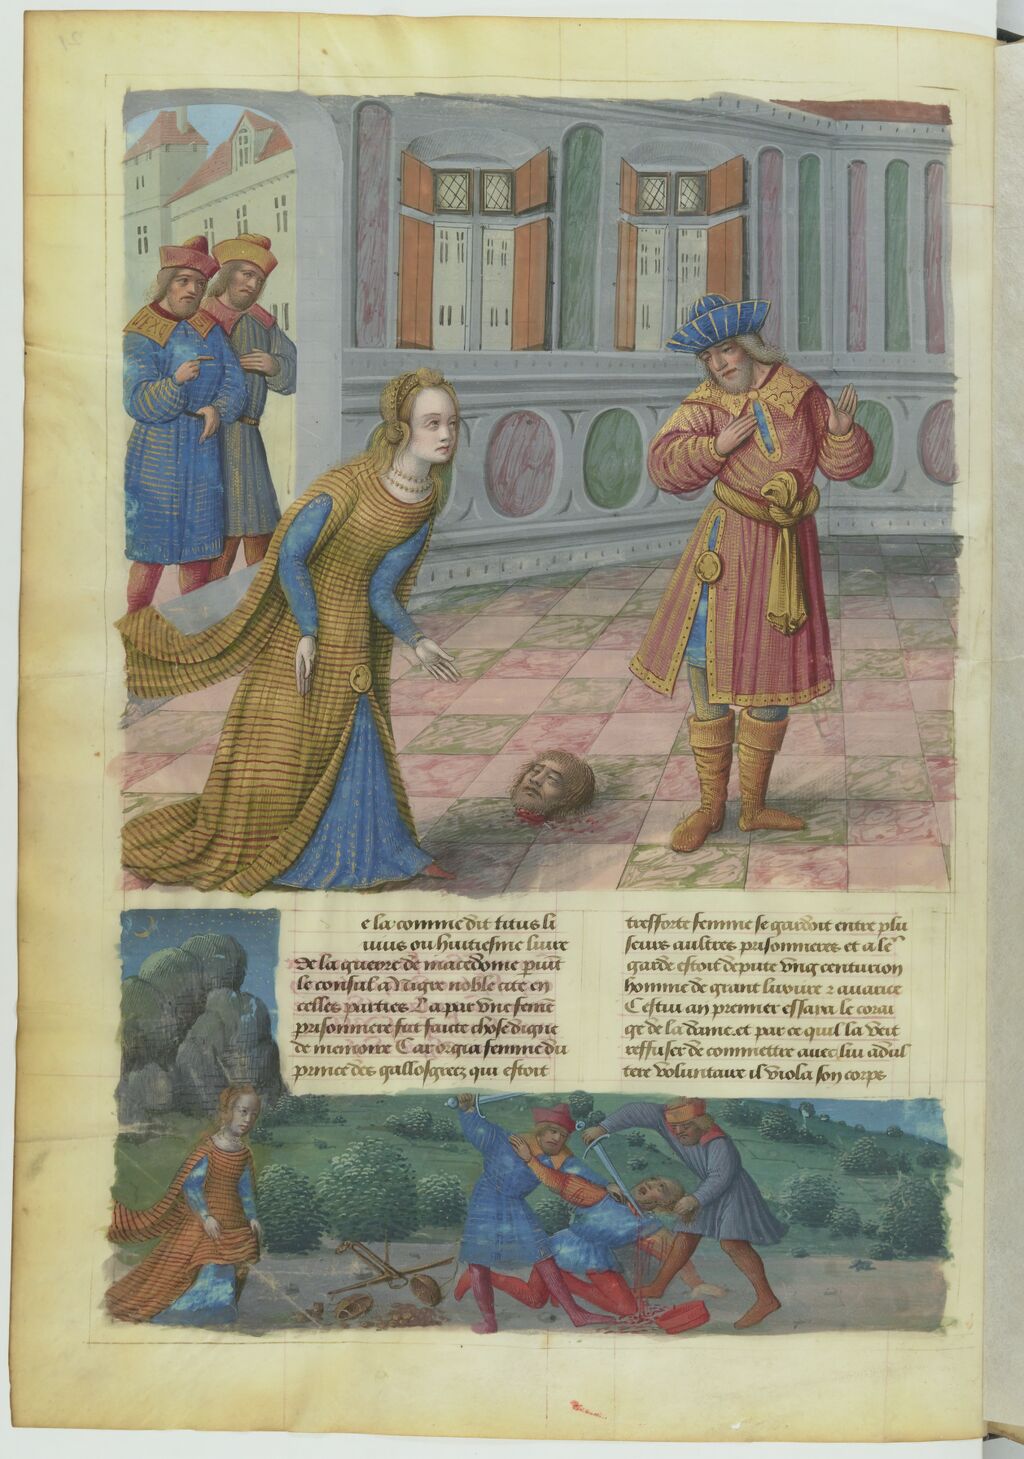 e la comme dit titus li
uius ou huitiesme liure
de la guerre de macedome print
le consul a Nigre noble cite en
celles parties La par vne feme
prisonniere fut faicte chose digne
de memoire Car orgia femme du
prince des gallosgrecz qui estoit
tresforte femme se gardoit entre plu
seurs aultres prisonnieres et a le
garde estoit depute vng centurion
homme de grant luxure & auarice
Cestui an premier essaia le corai
ge de la dame et par ce quil la veit
reffuser de commettre auec lui adul
tere voluntaire il viola son corps